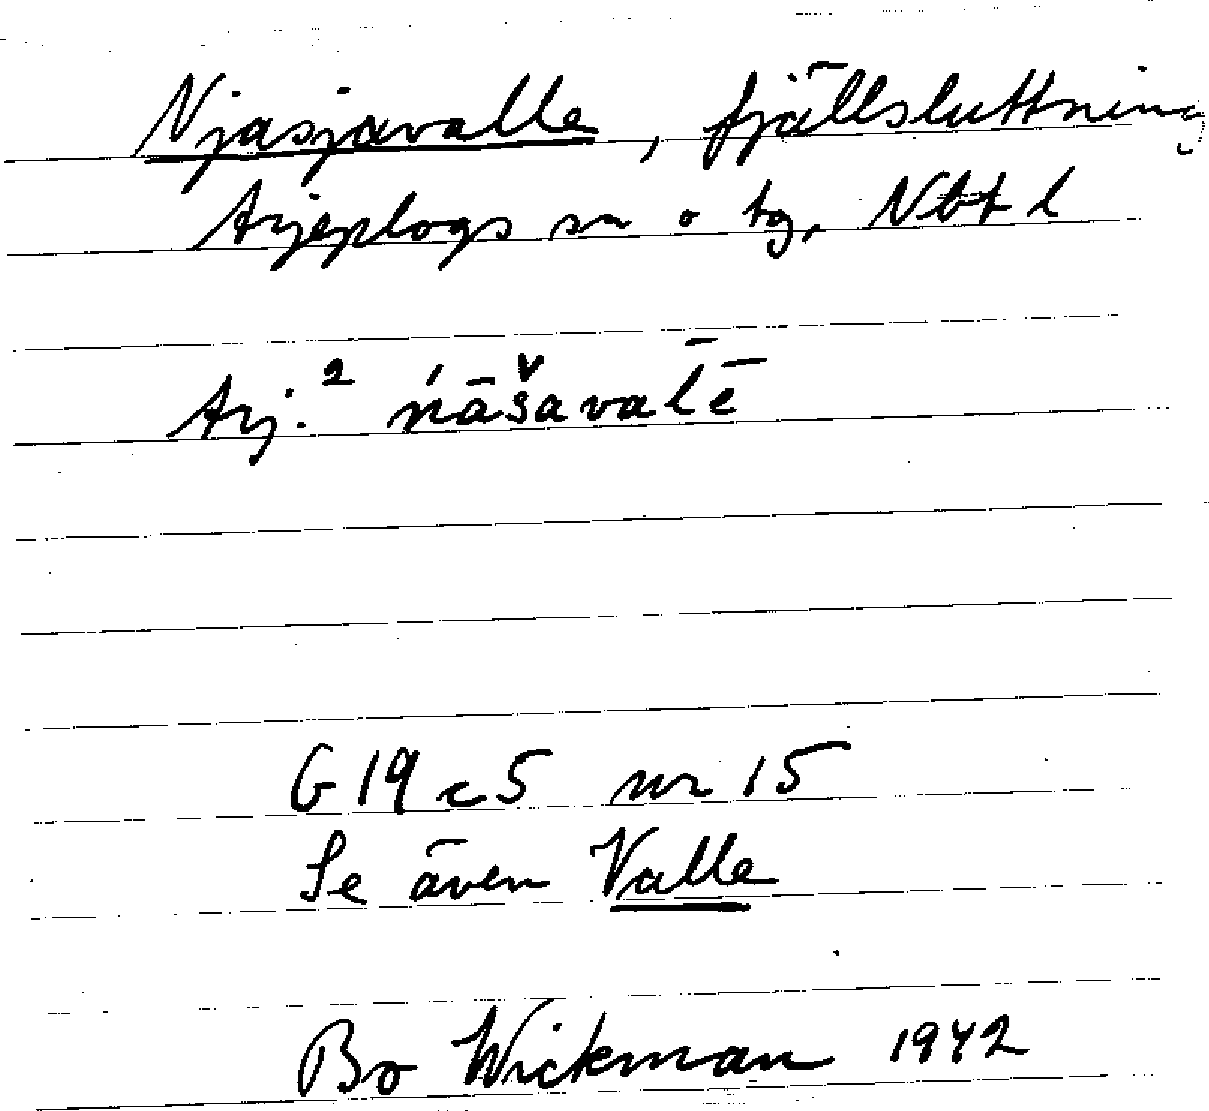 Njasjavalle, fjällsluttning
Arjeplogs sn o tg, Nbt l
Arj.² ńāšaval̄ē
G 19 c 5 nr 15
Se även Valle
Bo Wickman 1942